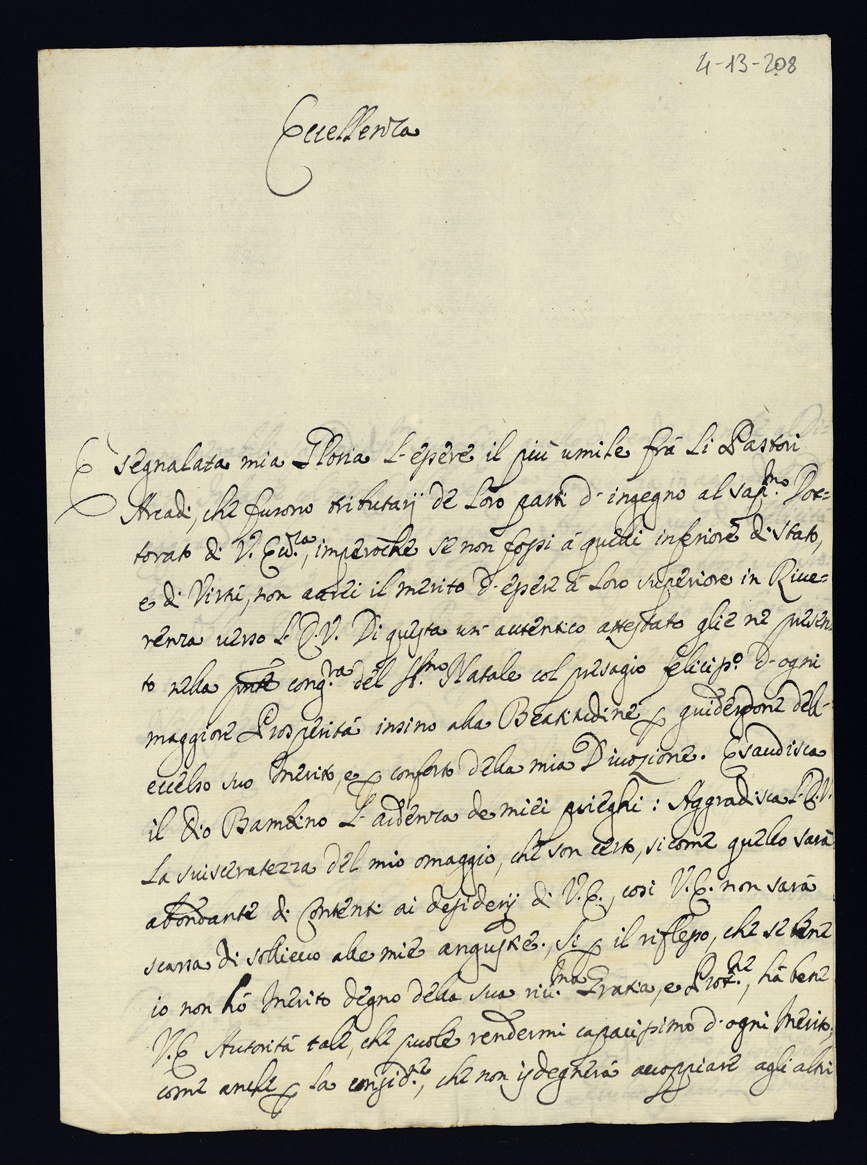 4-13-208
Eccellenza
E segnalata mia Gloria l'essere il più umile frà li Pastori
Arcadi, che furono tributarij de loro parti d'ingegno al sap.mo Dot=
torato di V.ra Ecc.za, imperoche se non fossi à quelli inferiore di stato,
e di Virtù, non aurei il merito d'essere à loro superiore in Riue=
renza uerso l'E.V. Di questa un autentico attestato glie ne presen
to nella pnte cong.ra del SS.mo Natale col presagio felicis.o d'ogni
maggiore Prosperità insino alla Beatitudine p guiderdone dell'
eccelso suo Merito, e p conforto della mia Diuozione. Esaudisca
il Dio Bambino l'ardenza de miei prieghi: Aggradisca l'E.V.
la suisceratezza del mio omaggio, che son certo, si come quello sarà
abondante di Contenti ai desiderij di V.E., così V.E. non sarà
scarsa di sollieuo alle mie angustie, Sì p il riflesso, che se bene
io non hò Merito degno della sua riu.ma Gratia, e Prot.ne, hà bene
V.E. Autorità tale, che puole rendermi capacissimo d'ogni Merito,
come anche p la consid.ne, che non isdegnerà accoppiare agli altri